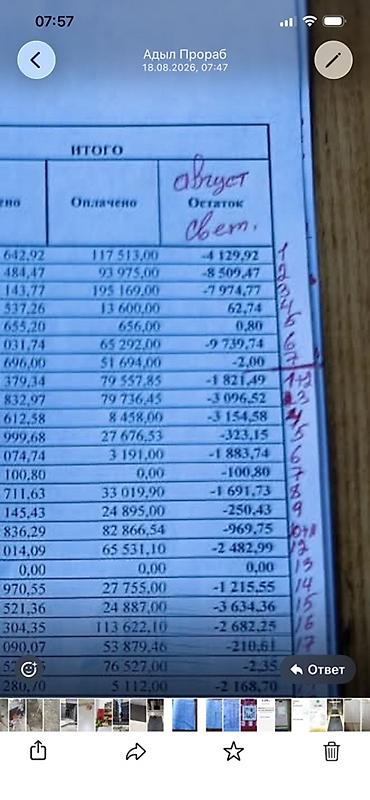 07:57
Адыл Прораб
18.08.2026, 07:47
ИТОГО
август
Оплачено Остаток
свет.
642,92 117 513,00 -4 129,92 1
484,47 93 975,00 -8 509,47 2
143,77 195 169,00 -7 974,77 3
537,26 13 600,00 62,74 4
655,20 656,00 0,80 5
031,74 65 292,00 -9 739,74 6
696,00 51 694,00 -2,00 7
379,34 79 557,85 -1 821,49 1+2
832,97 79 736,45 -3 096,52 3
612,58 8 458,00 -3 154,58 4
999,68 27 676,53 -323,15 5
074,74 3 191,00 -1 883,74 6
100,80 0,00 -100,80 7
711,63 33 019,90 -1 691,73 8
145,43 24 895,00 -250,43 9
836,29 82 866,54 -969,75 10+11
014,09 65 531,10 -2 482,99 12
0,00 0,00 0,00 13
970,55 27 755,00 -1 215,55 14
521,36 24 887,00 -3 634,36 15
304,35 113 622,10 -2 682,25 16
090,07 53 879,46 -210,61 17
76 527,00 -2,35
Ответ
280,70 5 112,00 -2 168,70